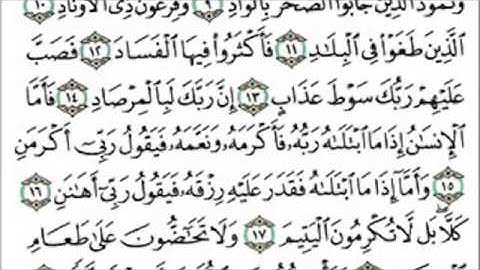 وَثَمُودَ الَّذِينَ جَابُوا الصَّخْرَ بِالْوَادِ ٩ وَفِرْعَوْنَ ذِي الْأَوْتَادِ ١٠
الَّذِينَ طَغَوْا فِي الْبِلَادِ ١١ فَأَكْثَرُوا فِيهَا الْفَسَادَ ١٢ فَصَبَّ
عَلَيْهِمْ رَبُّكَ سَوْطَ عَذَابٍ ١٣ إِنَّ رَبَّكَ لَبِالْمِرْصَادِ ١٤ فَأَمَّا
الْإِنسَٰنُ إِذَا مَا ابْتَلَىٰهُ رَبُّهُۥ فَأَكْرَمَهُۥ وَنَعَّمَهُۥ فَيَقُولُ رَبِّي أَكْرَمَنِ
١٥ وَأَمَّا إِذَا مَا ابْتَلَىٰهُ فَقَدَرَ عَلَيْهِ رِزْقَهُۥ فَيَقُولُ رَبِّي أَهَٰنَنِ ١٦
كَلَّا ۖ بَل لَّا تُكْرِمُونَ الْيَتِيمَ ١٧ وَلَا تَحَٰٓضُّونَ عَلَىٰ طَعَامِ